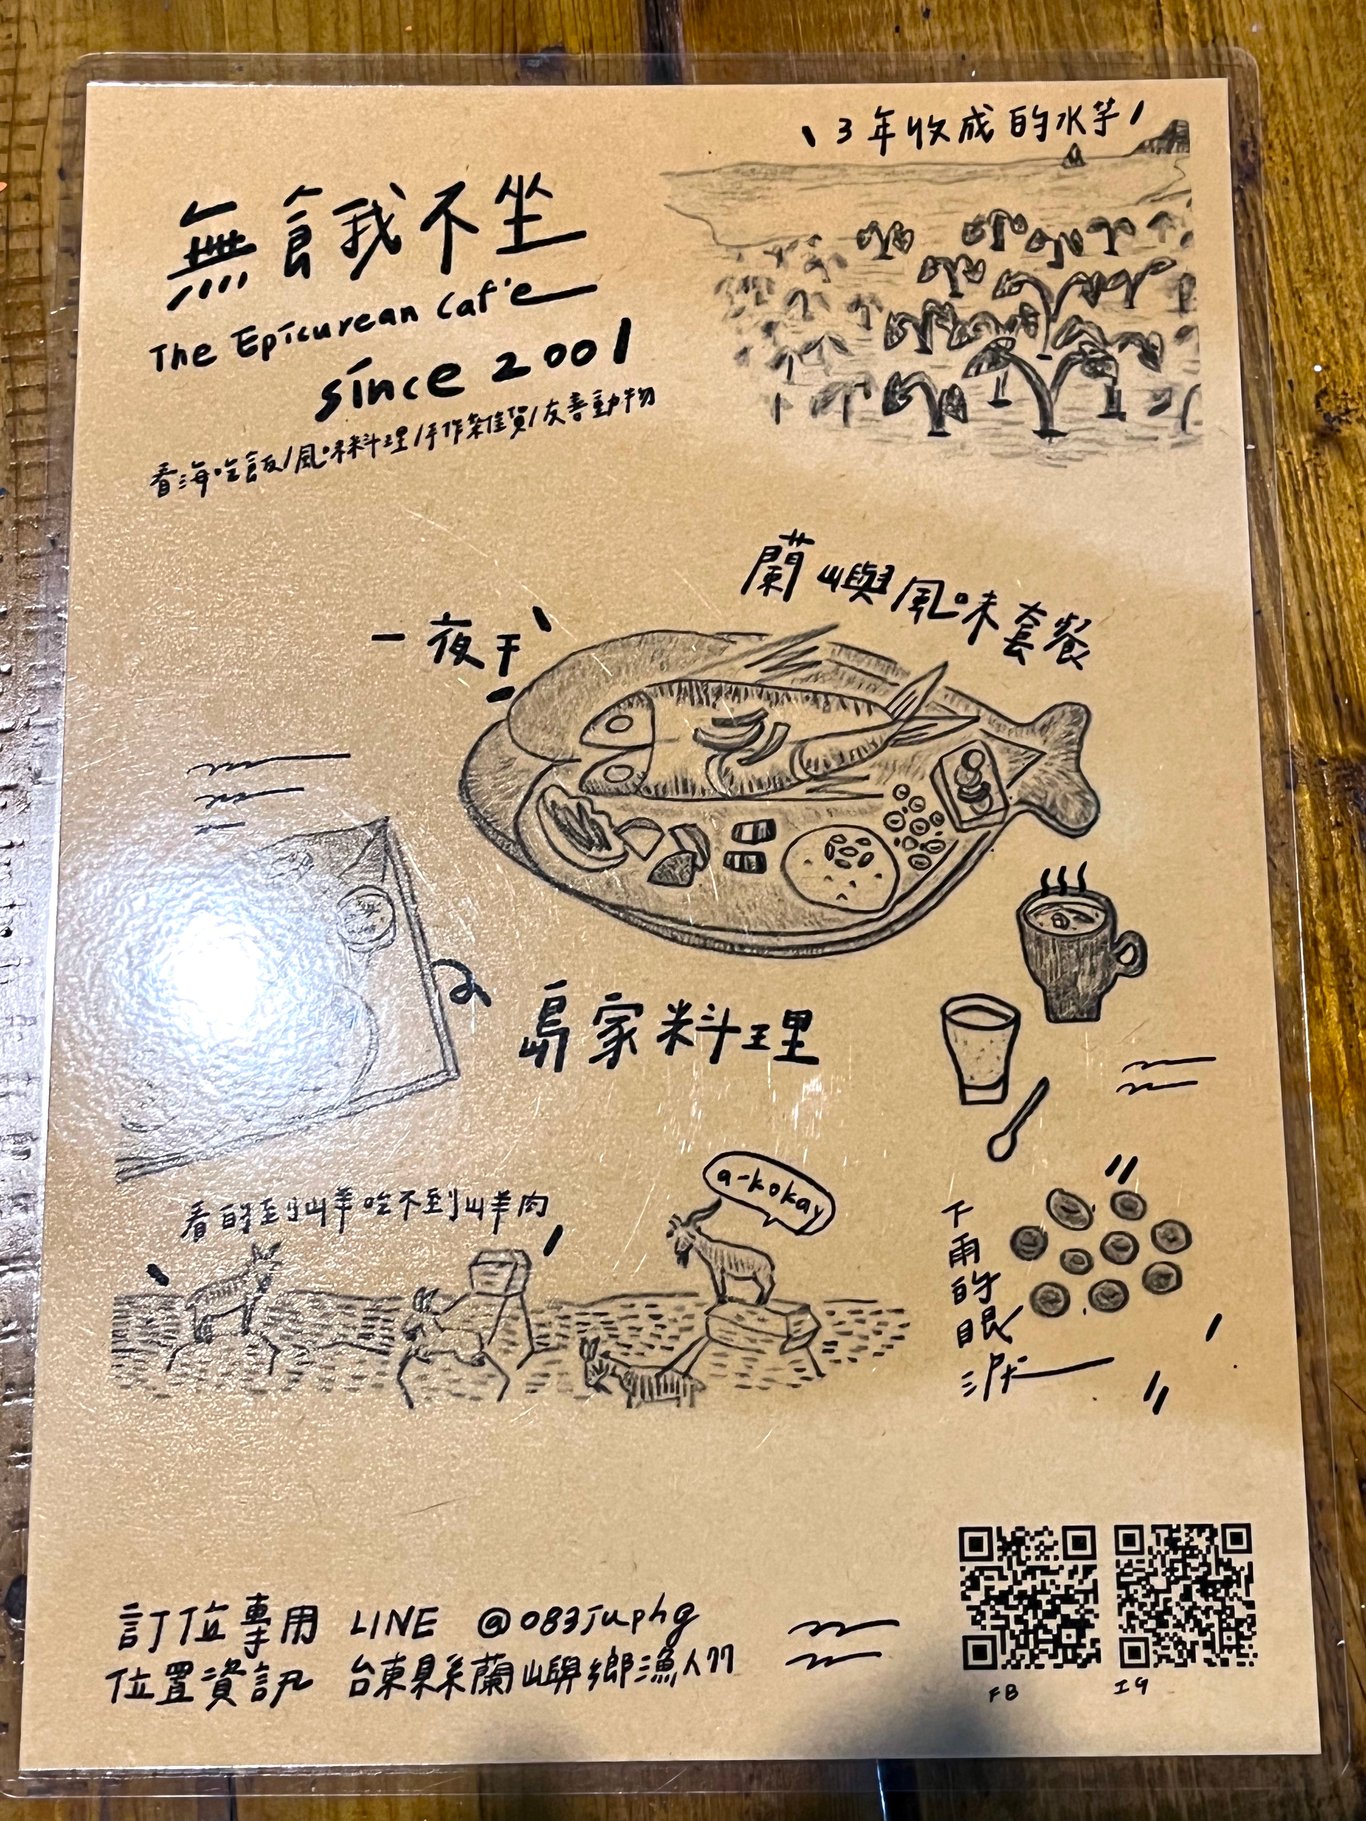 3年收成的水芋
無餓不坐
The Epicurean Cafe
since 2001
看海吃飯/風味料理/手作雜貨/友善動物
蘭嶼風味套餐
一夜干
島家料理
看的到山羊吃不到山羊肉
a-kokay
下雨的眼淚
訂位專用 LINE @083juphg
位置資訊 台東縣蘭嶼鄉漁人77
FB
IG